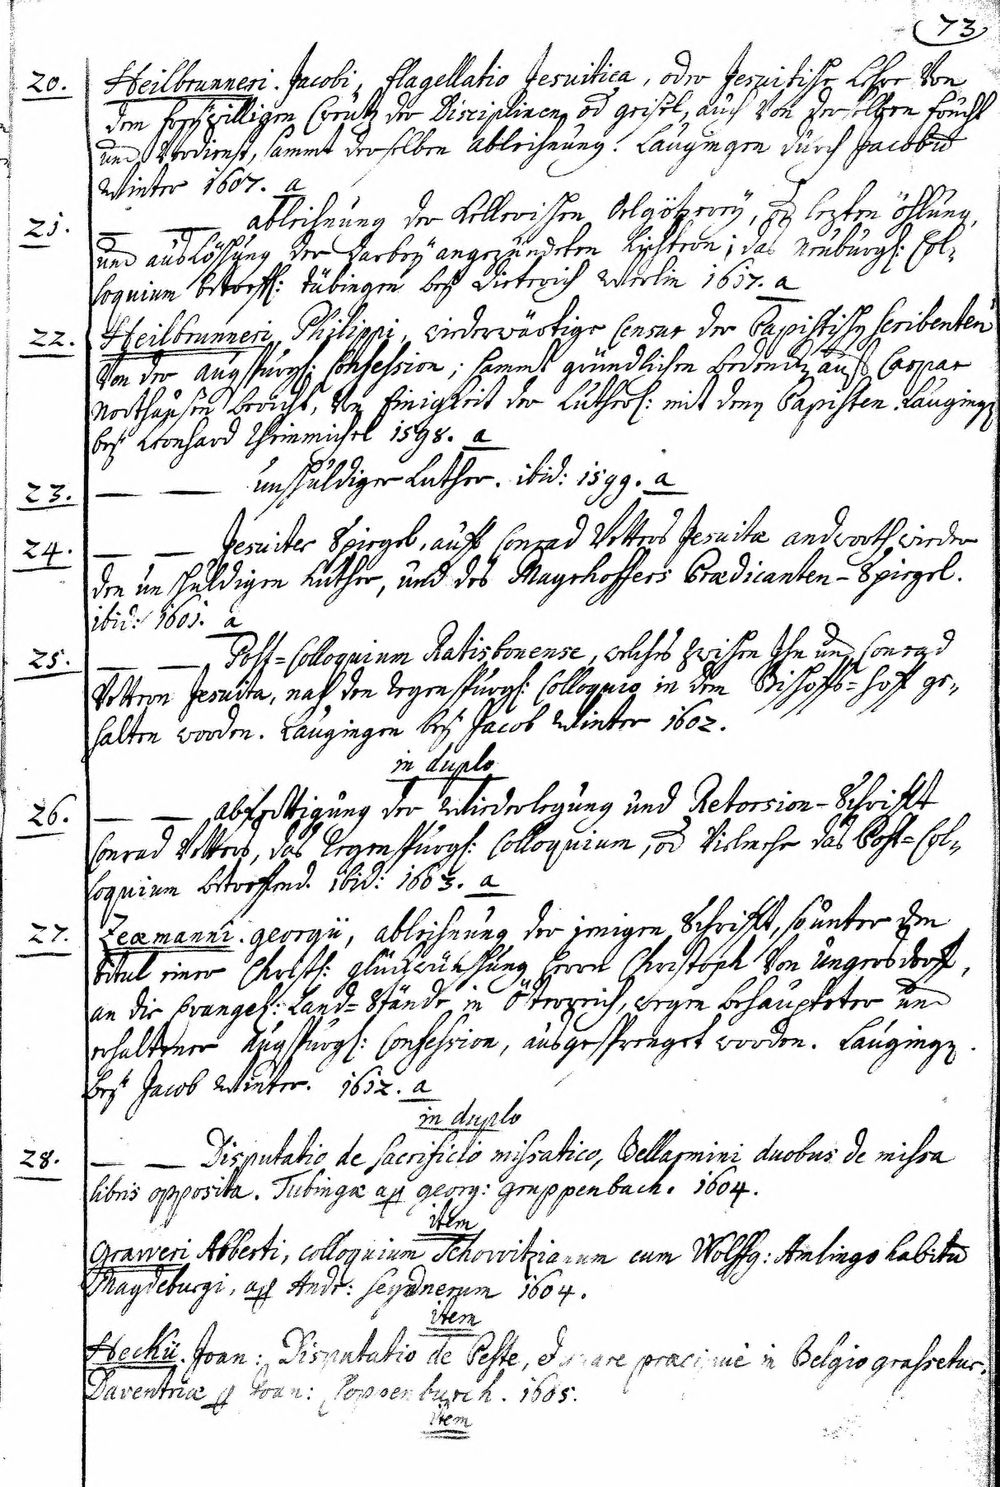 73
20. Heilbrunneri. Jacobi, flagellatio Jesuitica, oder Jesuitische Lehre von
dem freywilligen Creütz der Disciplinen, od geisel, auch von derselben frücht
und Verdienst, sammt derselben ableihnung. Laugingen dürch Jacobū
Winter 1607. a
21. — — ableihnung der Kellerischen Oelgötzerey, od lezten öhlung,
und ausLöschung der darbey angezündeten Lichtern; das Neuburgs: Col-
loquium betreff: tübingen bey Dieterich Werlin 1617. a
22. Heilbrunneri Philippi, wiederwärtige Censur der Papistischen Scribenten
von der Augspurgs: Confession; sammt gründlichen bedencken auff Caspar
bericht, von Einigkeit der Luthers: mit den Papisten. Laugingen
bey Leonhard Rheinmichel 1598. a
23. — — unschuldiger Luther. ibid: 1599. a
24. — — Jesuiter Spiegel, auff Conrad Vetters Jesuitæ andworth wieder
den unschuldigen Luther, und des Mayrhoffers Prædicanten-Spiegel.
ibid: 1601. a
25. — — Post=Colloquium Ratisbonense, welches zwischen Ihm und Conrad
Vettern Jesuita, nach den regenspurgs: Colloquio in dem Bischoffs=hoff ge-
halten worden. Laugingen bey Jacob Winter 1602.
in duplo
26. — — abfertigung der Wiederlegung und Retorsion-Schrifft
Conrad Vetters, das regenspurgs: Colloquium, od vielmehr das Post=Col-
loquium betreffend. ibid: 1603. a
27. Zeæmanni. georgii, ableihnung der jenigen Schrifft, so unter dem
titul einer Christl: glückwünschung Herrn Christoph von Ungersdorff,
an die Evangel: Land=Stände in Österreich, wegen behaupteter und
erhaltener Augspurgs: Confession, ausgesprenget worden. Laugingen.
bey Jacob Winter. 1612. a
in duplo
28. — — Disputatio de sacrificio missatico, Bellarmini duobus de missa
libris opposita. Tubingæ ap georg: gruppenbach. 1604.
item
Graweri Alberti, colloquium cum Wolffg: Amlingo habitū
Magdeburgi, ap Andr: 1604.
item
Heckii. Joan: Disputatio de Peste, præcipuè in Belgio grassetur.
Daventriæ Joan: 1605.
item